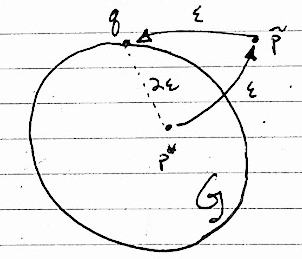 q ε p̃
2ε ε
p*
G